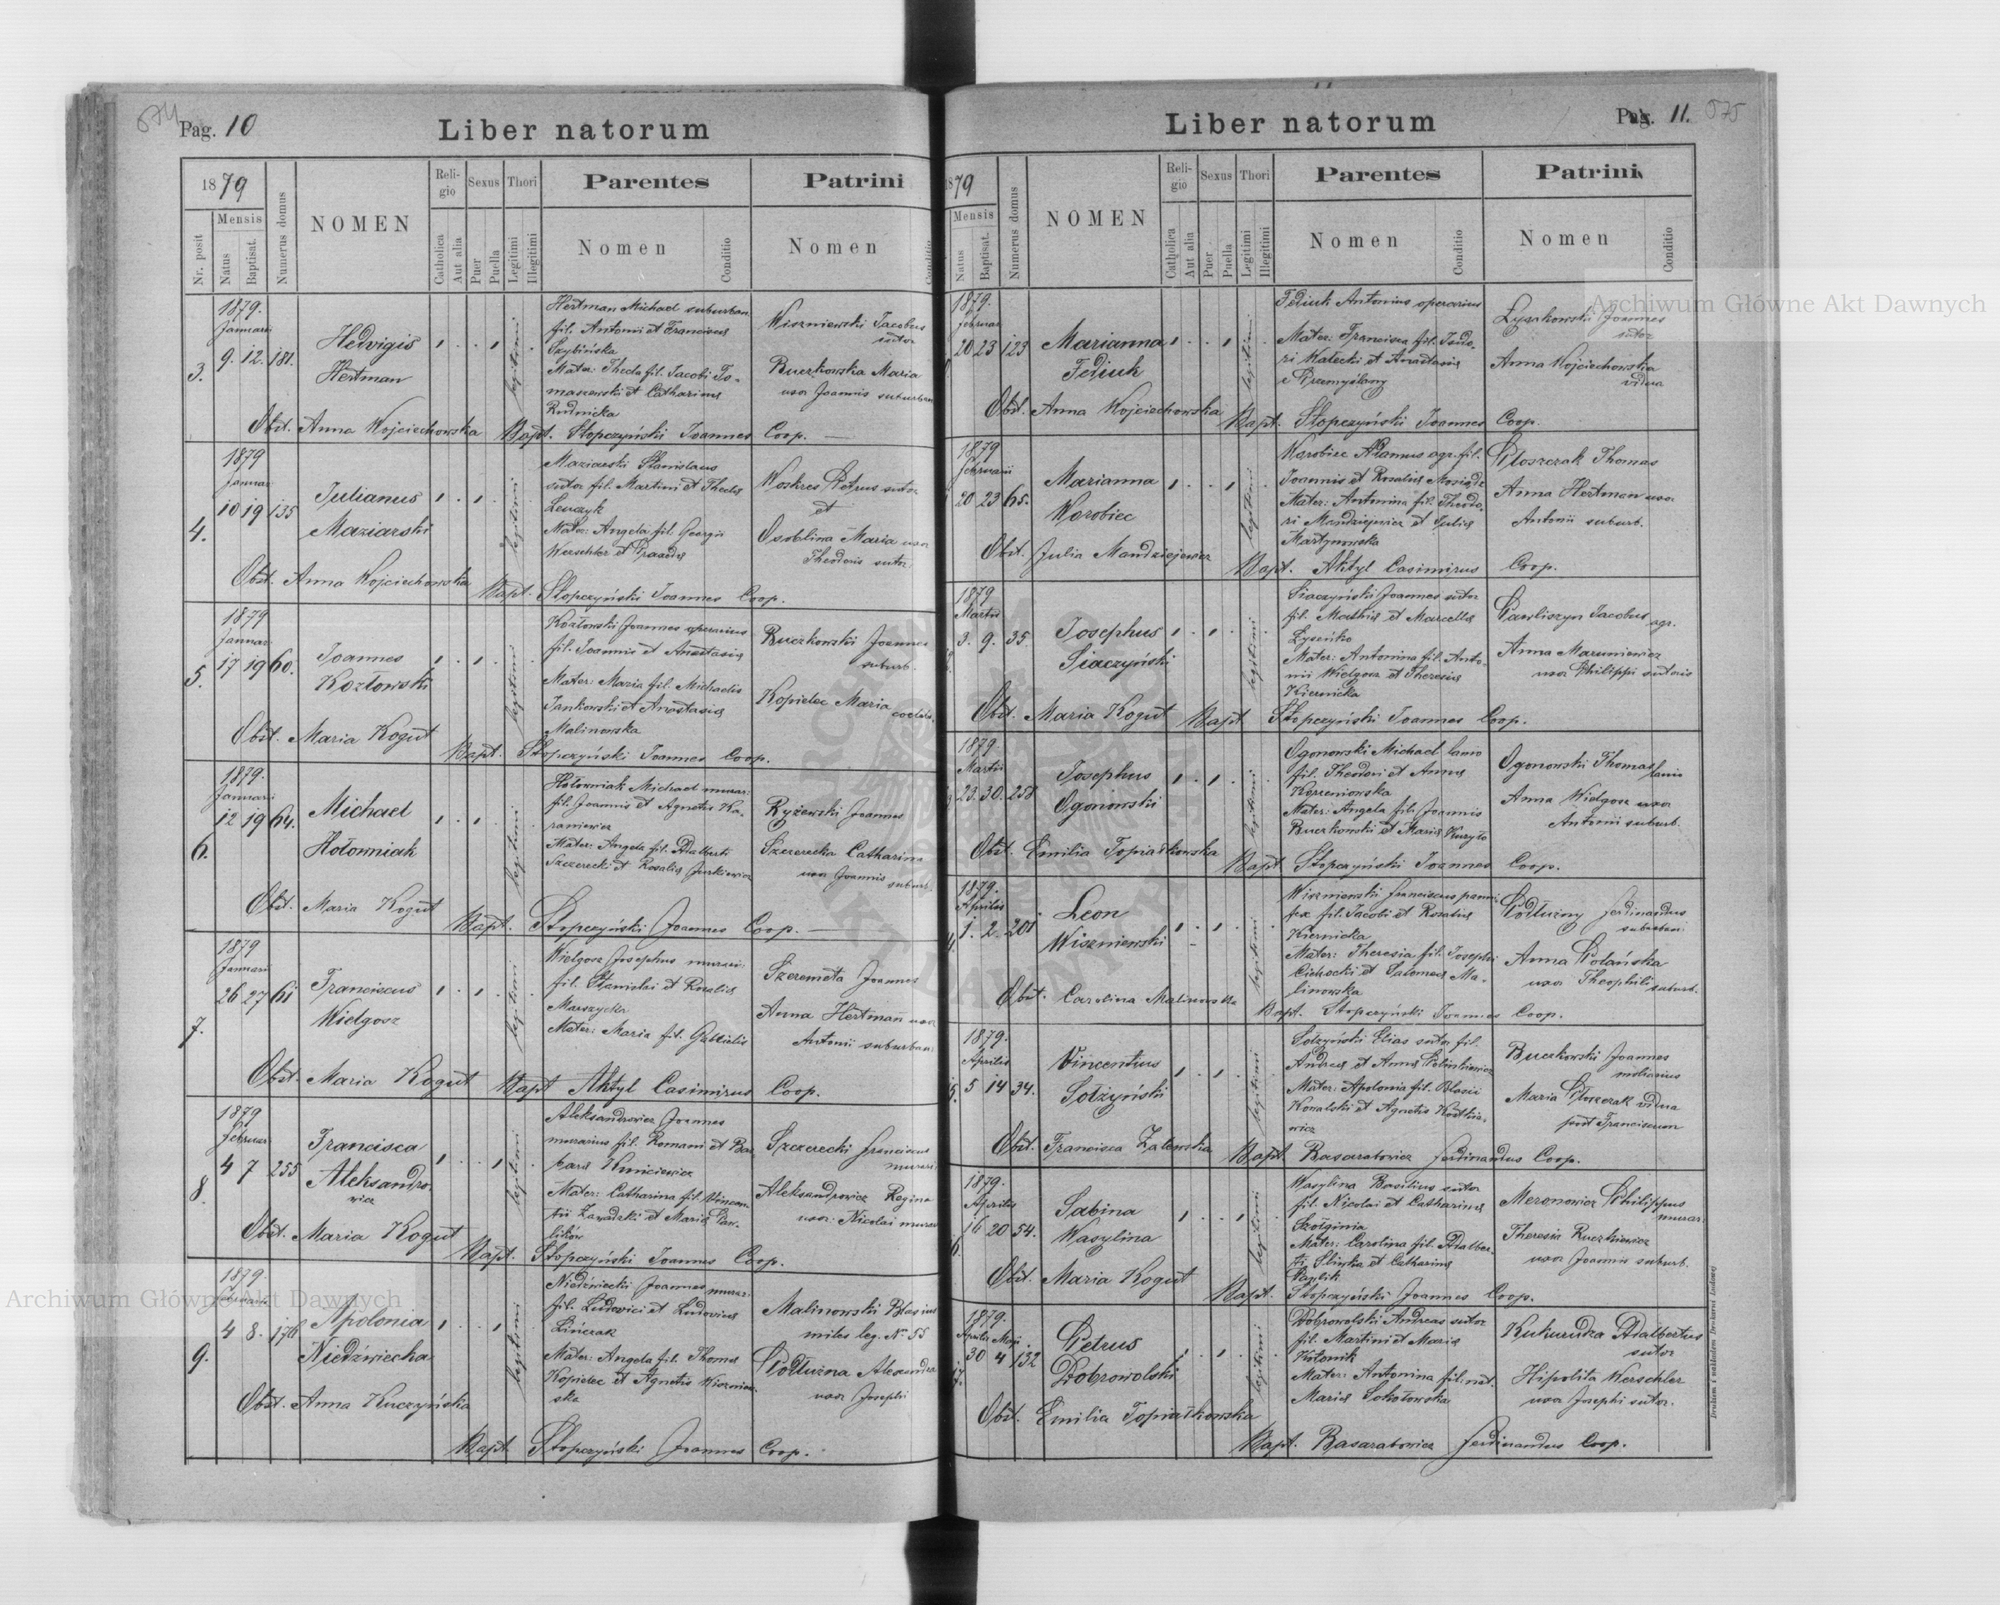 Pag. 10
Liber natorum
1879
Mensis
Nr. posit
Natus
Baptisat.
Numerus domus
NOMEN
Religio
Catholica
Aut alia
Sexus
Puer
Puella
Thori
Legitimi
Illegitimi
Parentes
Nomen
Conditio
Patrini
Nomen
3.
1879.
Januarii
9. 12. 181.
Hedvigis
Hertman
legitimi
Hertman Michael suburban.
fil. Antonii et Francisca
Szybińska
Mater: Thecla fil. Jacobi To-
maszewski et Catharina
Rudnicka
Wiszniewski Jacobus
sutor
Buczkowska Maria
uxor Joannis suburban
Obst. Anna Wojciechowska Bapt. Stopczyński Joannes Coop.
4.
1879
Januar
10 19 135
Julianus
Maziarski
legitimi
Maziarski Stanislaus
sutor fil. Martini et Thecla
Mater: Angela fil. Georgii
Werschler et
Woskres Petrus sutor
et
Osoblina Maria uxor
Theodoris sutor
Obst. Anna Wojciechowska Bapt. Stopczyński Joannes Coop.
5.
1879
Januar
17 19 60.
Joannes
Kozłowski
legitimi
Kozłowski Joannes operarius
fil. Joannis et Anastasia
Mater: Maria fil. Michaelis
Jankowski et Anastasia
Malinowska
Buczkowski Joannes
suburb.
Kopielec Maria
Obst. Maria Kogut Bapt. Stopczyński Joannes Coop.
6.
1879.
Januarii
12 19 64.
Michael
Hołowniak
legitimi
Hołowniak Michael murar:
fil. Joannis et Agnetis Ka-
raniewicz
Mater: Angela fil. Adalberti
Szczerecki et Rosalia Jurkiewicz
Ryżewski Joannes
Szczerecka Catharina
uxor Joannis suburb.
Obst. Maria Kogut Bapt. Stopczyński Joannes Coop.
7.
1879
Januarii
26 27 61
Franciscus
Wielgosz
legitimi
Wielgosz Josephus murari:
fil. Stanislai et Rosalia
Mater: Maria fil. Gabrielis
Szeremeta Joannes
Anna Hertman uxor
Antonii suburban:
Obst. Maria Kogut Bapt Aktyl Casimirus Coop.
8.
1879
Februar
4 7 255
Francisca
Aleksandro-
wicz
legitimi
Aleksandrowicz Joannes
murarius fil. Romani et Bar
bara Kuniciewicz
Mater: Catharina fil. Vincen-
tii Zawadzki et Maria Paw-
lików
Szczerecki Franciscus
murar:
Aleksandrowicz Regina
uxor: Nicolai murar
Obst. Maria Kogut Bapt. Stopczyński Joannes Coop.
9.
1879.
Februarii
4 8. 176
Apolonia
Niedźwiecka
legitimi
Niedźwiecki Joannes murar:
fil. Ludovici et Ludovica
Mater: Angela fil. Thoma
Kopielec et Agnetis Wisznie-
ska
Malinowski Blasius
miles leg. No 55
Podłużna Alexandra
uxor Josephi
Obst. Anna Kuczyńska
Bapt. Stopczyński Joannes Coop.
Pag. 11.
575
Liber natorum
1879
Mensis
Natus
Baptisat.
Numerus domus
NOMEN
Religio
Catholica
Aut alia
Sexus
Puer
Puella
Thori
Legitimi
Illegitimi
Parentes
Nomen
Conditio
Patrini
Nomen
Conditio
1879.
Februar
20 23 123
Marianna
Fediuk
legitimi
Fediuk Antonius operarius
Mater: Francisca fil. Isido-
ri Wałecki et Anastasia
e Przemyślany
Łysakowski Joannes
sutor
Anna Wojciechowska
vidua
Obst. Anna Wojciechowska Bapt. Stopczyński Joannes Coop.
1879
Februarii
20 23 65.
Marianna
Worobiec
legitimi
Worobiec Adamus agr. fil.
Joannis et Rosalia
Mater: Antonina fil. Theodo-
ri Mandziejewicz et Julia
Martynowska
Ptoszczak Thomas
Anna Hertman uxor
Antonii suburb.
Obst. Julia Mandziejewicz Bapt. Aktyl Casimirus Coop.
1879
Martii
3. 9. 35.
Josephus
Siaczyński
legitimi
Siaczyński Joannes sutor
fil. Mathia et Marcella
Łyseńko
Mater: Antonina fil. Anto-
nii Wielgosz et Theresia
Kiernicka
Pawliszyn Jacobus agr.
Anna Maruniewicz
uxor Philippi sutoris
Obst. Maria Kogut Bapt Stopczyński Joannes Coop.
1879
Martii
23. 30. 258
Josephus
Ogonowski
legitimi
Ogonowski Michael lanio
fil. Theodori et Anna
Korzeniowska
Mater: Angela fil. Joannis
Buczkowski et Maria Kuryło
Ogonowski Thomas lanio
Anna Wielgosz uxor
Antonii suburb.
Obst. Emilia Topiatkowska Bapt. Stopczyński Joannes Coop.
1879.
Aprilis
1. 2. 201
Leon
Wiszniewski
legitimi
Wiszniewski Franciscus panni-
fex fil. Jacobi et Rosalia
Kiernicka
Mater: Theresia fil. Josephi
Cichocki et Salomea Ma-
linowska
Podłużny Ferdinandus
suburban:
Anna Polańska
uxor Theophili suburb.
Obst. Carolina Malinowska Bapt. Stopczyński Joannes Coop.
1879.
Aprilis
5 14 34.
Vincentius
Sołżyński
legitimi
Sołżyński Elias sutor fil.
Andrea et Anna
Mater: Apolonia fil. Blasii
Kowalski et Agnetis Kostkie-
wicz
Buczkowski Joannes
Maria Ptoszczak vidua
post Franciscum
Obst. Francisca Zalewska Bapt. Basarabowicz Ferdinandus Coop.
1879.
Aprilis
16 20 54.
Sabina
Wasylina
legitimi
Wasylina Basilius sutor
fil. Nicolai et Catharina
Szołginia
Mater: Carolina fil. Adalber-
ti Śliwka et Catharina
Pawlik
Meronowicz Philippus
murar:
Theresia Ruczkiewicz
uxor Joannis suburb.
Obst. Maria Kogut Bapt. Stopczyński Joannes Coop.
1879.
Aprilis Maji
30 4 132
Petrus
Dobrowolski
legitimi
Dobrowolski Andreas sutor
fil. Martini et Maria
Kitonik
Mater: Antonina fil: nat.
Maria Sokołowska
Kukurudza Adalbertus
sutor
Hipolita Werschler
uxor Josephi sutor.
Obst. Emilia Topiatkowska
Bapt. Basarabowicz Ferdinandus Coop.
Archiwum Główne Akt Dawnych
Archiwum Główne Akt Dawnych